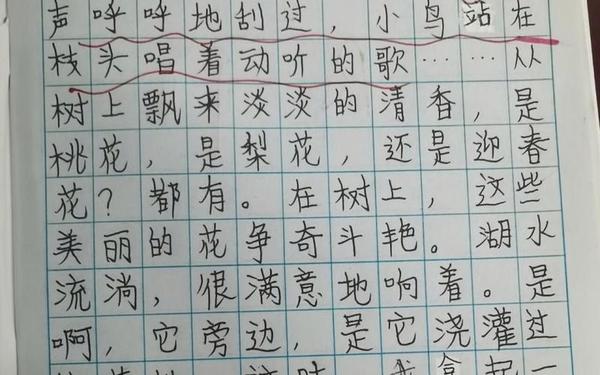 声呼呼地刮过，小鸟站在
枝头唱着动听的歌……从
树上飘来淡淡的清香，是
桃花，是梨花，还是迎春
花？都有。在树上，这些
美丽的花争奇斗艳。湖水
流淌，很满意地响着。是
啊，它旁边，是它浇灌过